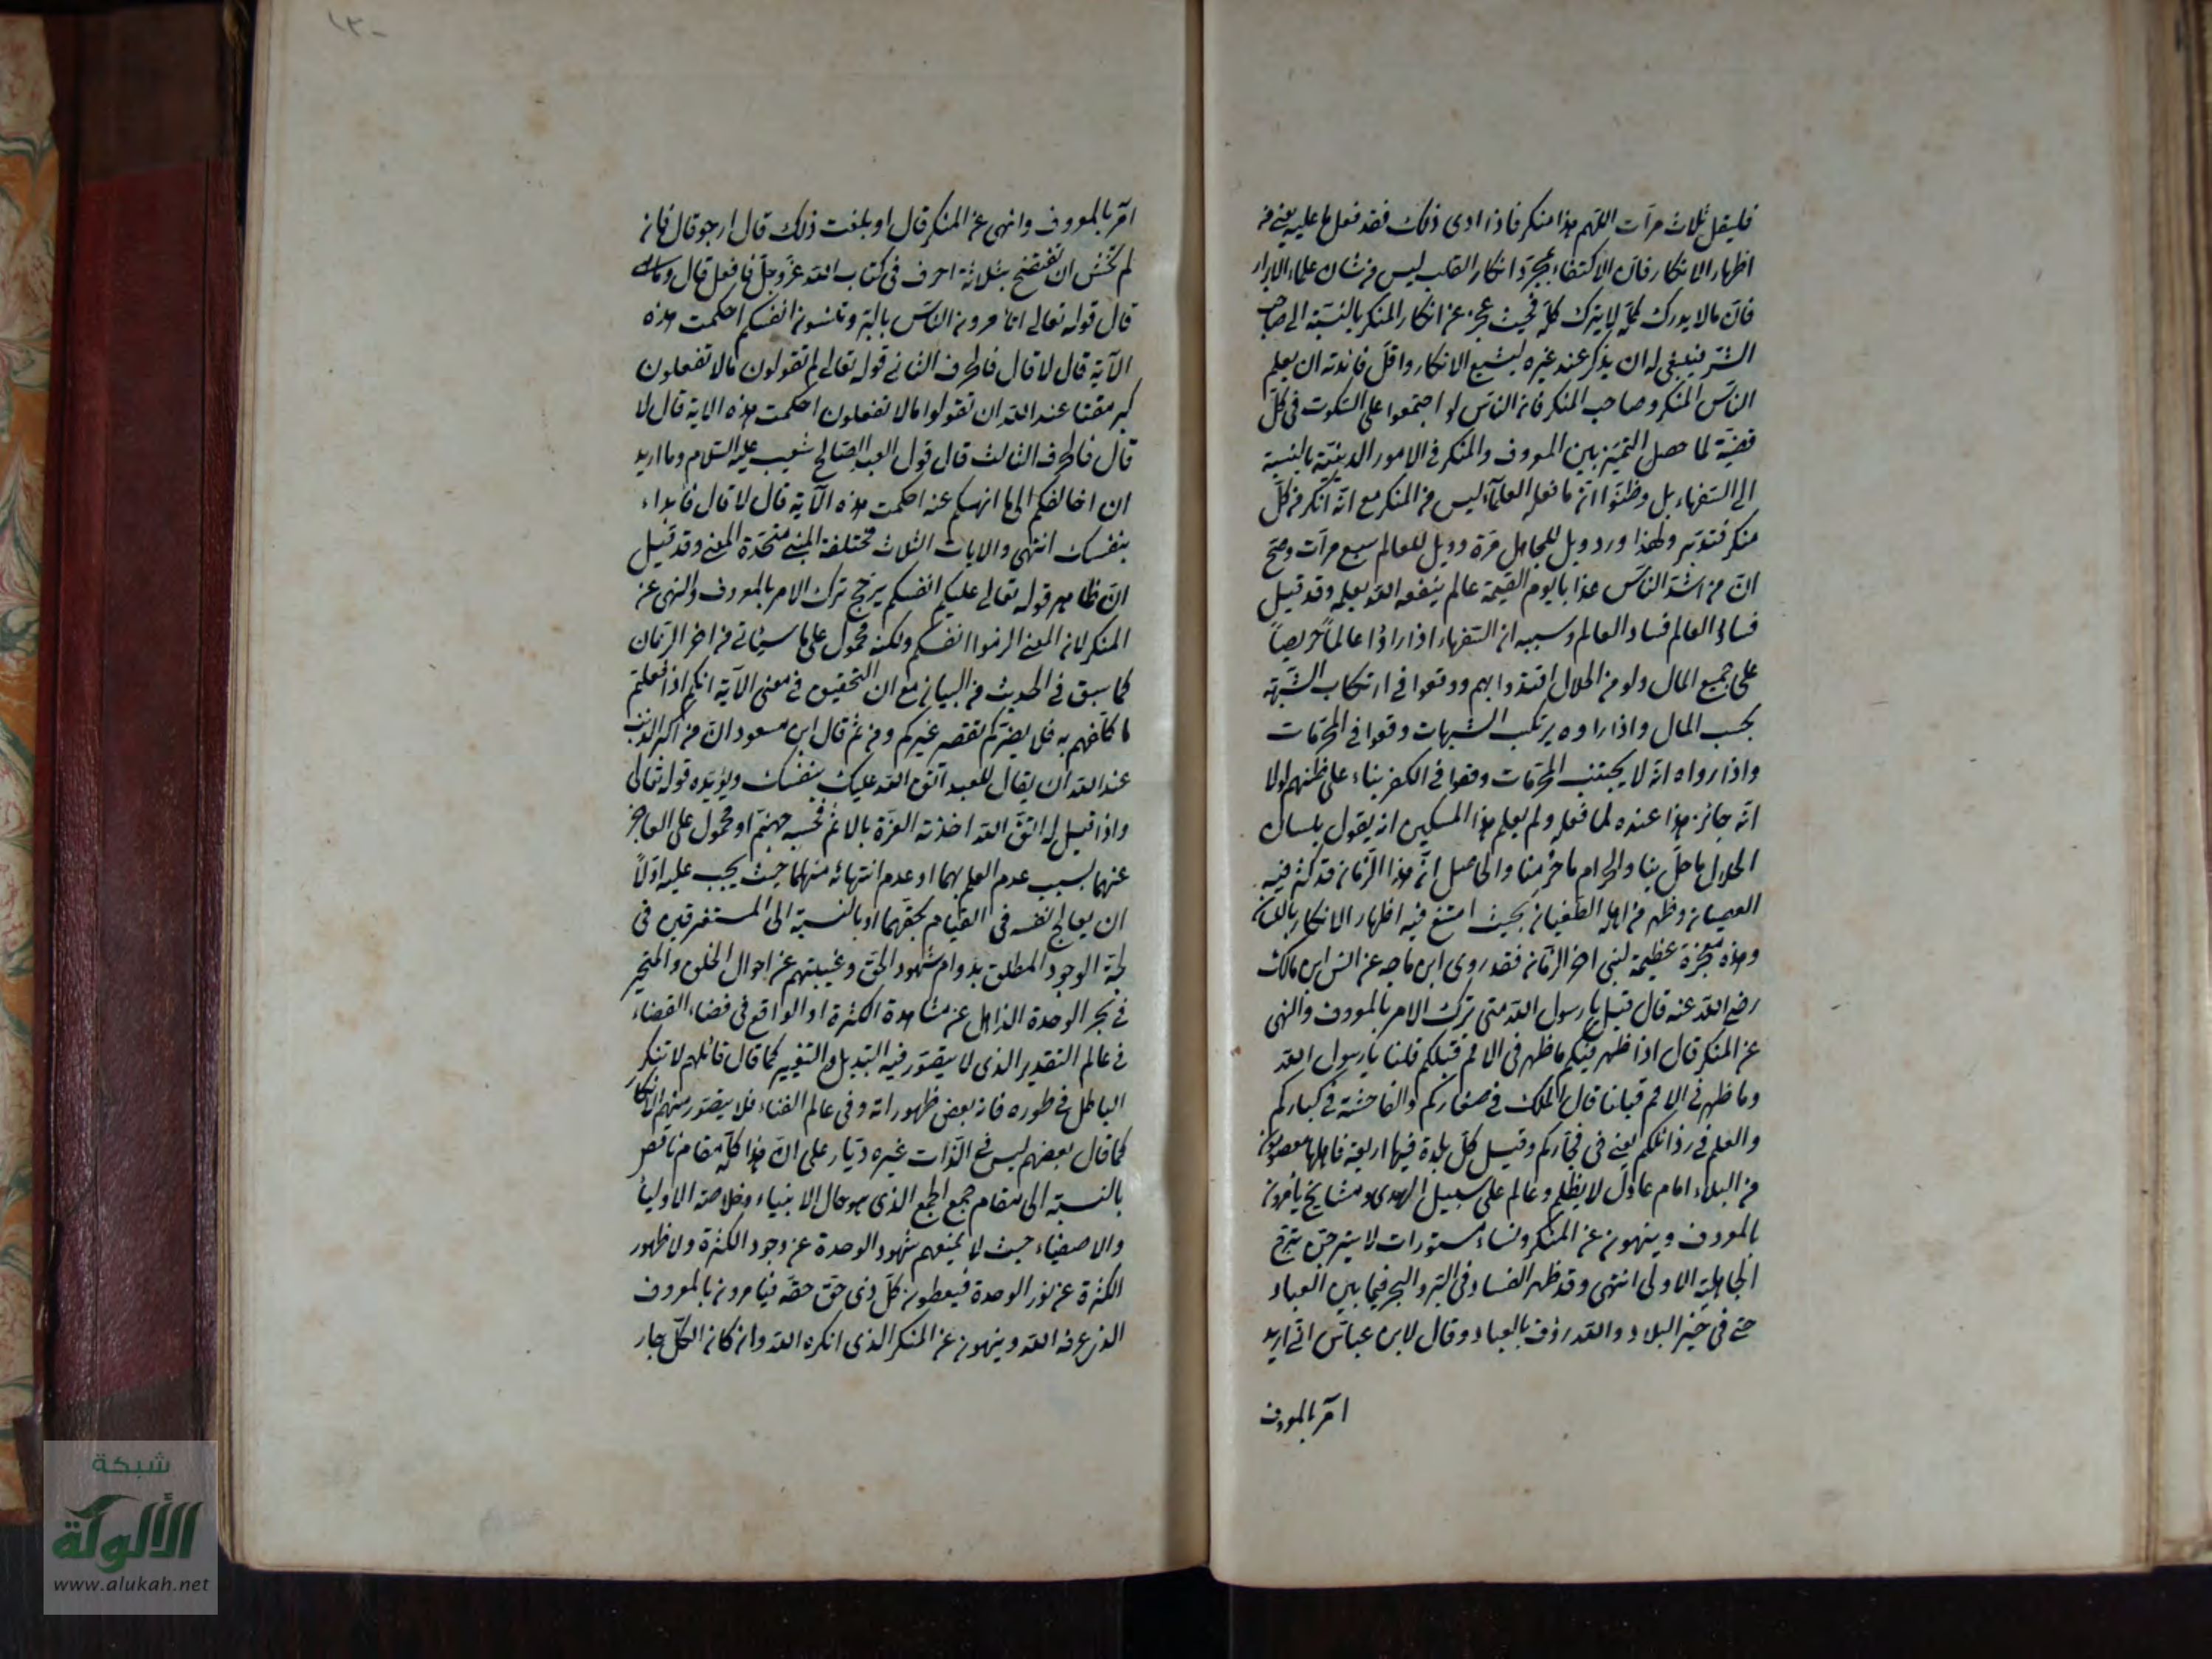 فليقل ثلاث مرات اللهم هذا منكر فاذا ادى ذلك فقد فعل ما عليه يعني من
اظهار الانكار فان الاكتفاء بمجرد انكار القلب ليس من شان علماء الابرار
فان مالا يدرك كله لا يترك كله فحيث عجز عن انكار المنكر بالنسبة الى صاحب
الشر ينبغي له ان يذكر عند غيره ليشيع الانكار واقل فائدته ان يعلم
الناس المنكر وصاحب المنكر فان الناس لو اجتمعوا على السكوت في كل
قضية لما حصل التميز بين المعروف والمنكر في الامور الدينية بالنسبة
الى السفهاء بل وظنوا ان ما فعله العلماء ليس من المنكر مع انه انكر من كل
منكر فتدبر ولهذا ورد ويل للجاهل مرة وويل للعالم سبع مرات وصح
ان من اشد الناس عذابا يوم القيمة عالم ينفعه الله بعلمه وقد قيل
فساد العالم فساد العالم وسببه ان السفهاء اذا راؤا عالما حريصا
على جمع المال ولو من الحلال اقتدوا بهم ووقعوا في ارتكاب الشبهة
بحسب المال واذا راوه يرتكب الشبهات وقعوا في المحرمات
واذا رواه انه لا يجتنب المحرمات وقعوا في الكفر بناء على ظنهم لولا
انه جائز هذا عنده لما فعله ولم يعلم هذا المسكين انه يقول بلسان
الحلال ما حل بنا والحرام ما حرمنا والحاصل ان هذا الزمان قد كثر فيه
العصيان وظهر من اهله الطغيان بحيث امتنع فيه اظهار الانكار باللسان
وهذه معجزة عظيمة لنبي اخر الزمان فقد روى ابن ماجه عن انس ابن مالك
رضي الله عنه قال قيل يا رسول الله متى نترك الامر بالمعروف والنهى
عن المنكر قال اذا ظهر فيكم ما ظهر في الامم قبلكم قلنا يا رسول الله
وما ظهر في الامم قبلنا قال الملك في صغاركم والفاحشة في كباركم
والعلم في رذالتكم يعني في فجاركم وقيل كل بلدة فيها اربعة فاهلها معصومون
من البلاء امام عادل لا يظلم وعالم على سبيل الهدى ومشايخ يأمرون
بالمعروف وينهون عن المنكر ونساء مستورات لا يتبرجن تبرج
الجاهلية الاولى انتهى وقد ظهر الفساد في البر والبحر فيما بين العباد
حتى في خير البلاد والله رؤف بالعباد وقال لابن عباس اني اريد
امر بالمعروف
امر بالمعروف وانهى عن المنكر قال او بلغت ذلك قال ارجو قال فان
لم تخش ان تفتضح بثلاثة احرف في كتاب الله عز وجل فافعل قال وما هي
قال قوله تعالى اتامرون الناس بالبر وتنسون انفسكم احكمت هذه
الآية قال لا قال فالحرف الثاني قوله تعالى لم تقولون مالا تفعلون
كبر مقتا عند الله ان تقولوا مالا تفعلون احكمت هذه الاية قال لا
قال فالحرف الثالث قال قول العبد الصالح شعيب عليه السلام وما اريد
ان اخالفكم الى ما انهيكم عنه احكمت هذه الآية قال لا قال فابداء
بنفسك انتهى والايات الثلاث مختلفة المبنى متحدة المعنى وقد قيل
ان ظاهر قوله تعالى عليكم انفسكم يرجح ترك الامر بالمعروف والنهى عن
المنكر لان المعنى الزموا انفسكم ولكنه محمول على ما سيئاتي من اخر الزمان
كما سبق في الحديث من البيان مع ان التحقيق في معنى الآية انكم اذا فعلتم
ما كلفتم به فلا يضركم تقصير غيركم ومن ثم قال ابن مسعود ان من اكبر الذنب
عند الله ان يقال للعبد اتق الله عليك بنفسك ويؤيده قوله تعالى
واذا قيل له اتق الله اخذته العزة بالاثم فحسبه جهنم او محمول على العاجز
عنهما بسبب عدم العلم بهما او عدم انتهائه منهما حيث يجب عليه اولا
ان يعالج نفسه في القيام بحقهما او بالنسبة الى المستغرقين في
لجة الوجود المطلق بدوام شهود الحق وغيبتهم عن احوال الخلق والمتحير
في بحر الوحدة الذاهل عن مشاهدة الكثرة او الواقع في فضاء القضاء
في عالم التقدير الذي لا يتصور فيه التبديل والتغيير كما قال قائلهم لا تنكر
الباطل في طوره فانه بعض ظهوراته وفي عالم الفناء فلا يتصور منهم الانكار
كما قال بعضهم ليس في الذات غيره ديار على ان هذا كله مقام ناقص
بالنسبة الى مقام جمع الجمع الذي هو حال الانبياء وخلاصة الاوليأ
والاصفياء حيث لا يمنعهم شهود الوحدة عن وجود الكثرة ولا ظهور
الكثرة عن نور الوحدة فيعطون كل ذي حق حقه فيامرون بالمعروف
الذي عرفه الله وينهون عن المنكر الذي انكره الله وان كان الكل جار
شبكة
الألوكة
www.alukah.net